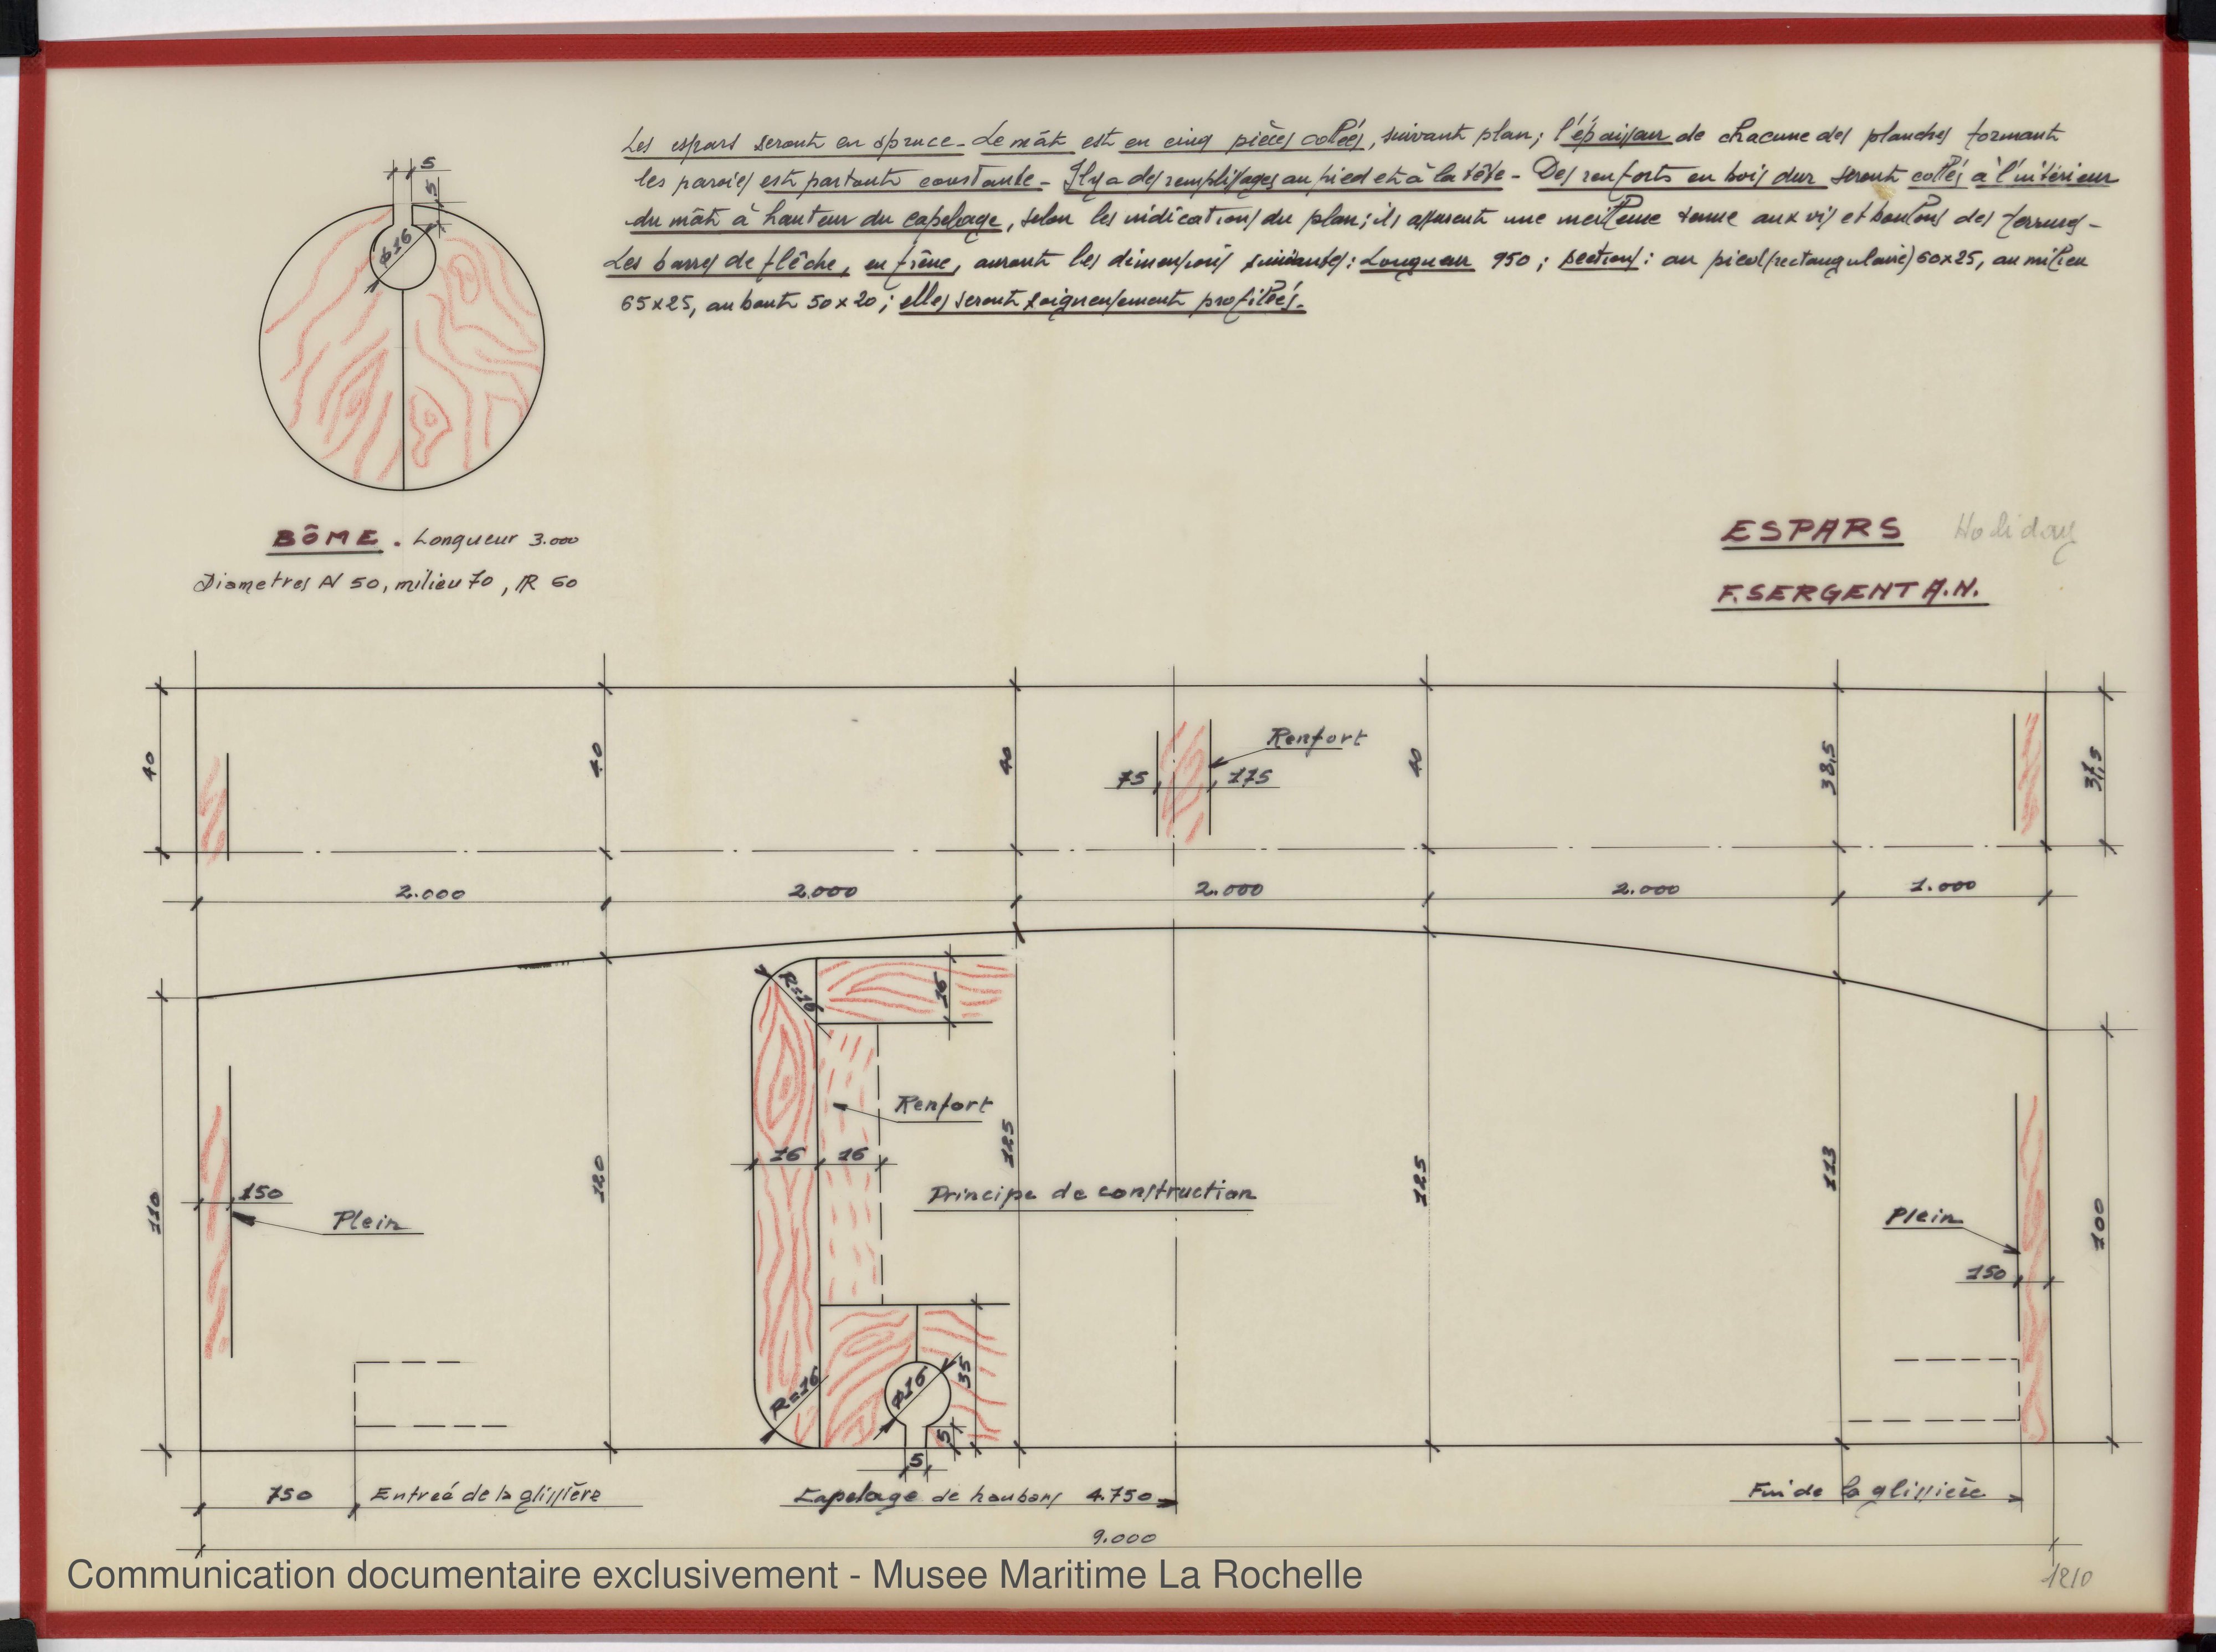 Les espars seront en spruce - Le mât est en cinq pièces collées, suivant plan; l'épaisseur de chacune des planches formant
les parois est partout constante - Il y a des remplissages au pied et à la tête - Des renforts en bois dur seront collés à l'intérieur
du mât à hauteur du capelage, selon les indications du plan; ils assurent une meilleure tenue aux vis et boulons des ferrures -
Les barres de flêche, en frêne, auront les dimensions suivantes: Longueur 950; sections: au pied (rectangulaire) 60x25, au milieu
65x25, au bout 50x20; elles seront soigneusement profilées.
5
5
φ16
BÔME. Longueur 3.000
Diametres AV 50, milieu 70, AR 60
ESPARS Holiday
F. SERGENT A.N.
40
40
40
75
Renfort
175
40
38,5
37,5
2.000
2.000
2.000
2.000
1.000
R=16
16
Renfort
16
16
Principe de construction
110
150
Plein
120
125
125
113
Plein
150
100
R=16
φ16
35
5
5
750
Entreé de la glissière
Capelage de haubans 4.750
Fin de la glissière
9.000
Communication documentaire exclusivement - Musee Maritime La Rochelle
1210